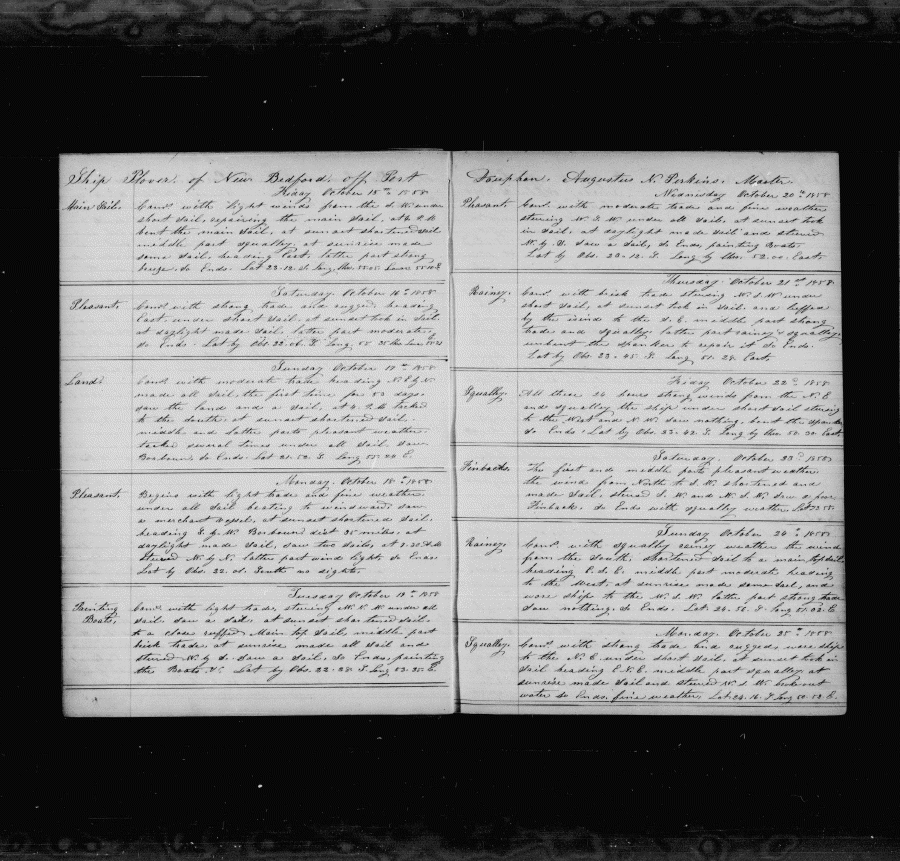 Ship Plover of New Bedford off Port
Friday October 15th 1858
Main Sail. Coms. with light winds from the S.W. under
short sail, repairing the main sail, at 4 P.M.
bent the main sail, at sunset shortened sail
middle part squally, at sunrise made
some sail heading East, latter part strong
breeze, So Ends. Lat 23.12. S. Long
Saturday October 16th 1858
Pleasant. Coms. with strong trade and rugged, heading
East under short sail, at sunset took in sail
at daylight made sail, latter part moderate,
So Ends. Lat by Obs. 22. S. Long. 55
Sunday October 17th 1858
Land. Coms. with moderate trade heading N.E by N.
made all sail the first time for 53 days.
saw the land and a sail, at 4. P.M tacked
to the south, at sunset shortened sail.
middle and latter parts pleasant weather.
tacked several times under all sail. saw
Bourboun So Ends. Lat 21.52. S. Long 55.24 E.
Monday. October 18th 1858
Pleasant. Begins with light trade and fine weather
under all sail beating to windward, saw
a merchant vessel, at sunset shortened sail.
heading S. by W. Bourboun dist 35 miles, at
daylight made sail, saw two sails, at 8.30 A.M
steered N. by N. latter part wind light, So Ends.
Lat by Obs. 22. South no sights.
Tuesday October 19th 1858
Painting Coms. with light trade, stearing W.S.W under all
Boats. sail. saw a sail. at sunset shortened sail
to a close reffed Main top sail, middle part
brick trade, at sunrise made all sail and
steered W. by S. saw a sail, So Ends, painting
the Boats &c. Lat by Obs 22.28. S. Long 53.35. E.
Dauphan. Augustus N. Perkins. Master
Wednesday October 20th 1858
Pleasant. Coms. with moderate trade and fine weather
stearing W.S.W under all sail. at sunset took
in sail, at daylight made sail and steered
W. by S. saw a sail, So Ends painting Boats.
Lat by Obs. 23.12. S. Long by Chro. 52.00. East.
Thursday October 21st 1858
Rainey. Coms. with brick trade stearing W.S.W under
short sail, at sunset took in sail and luffed
by the wind to the S.E. middle part strong
trade and squally. latter part rainey & squally
unbent the spanker to repair it So Ends.
Lat by Obs 23.45. S. Long 51.29. East.
Friday October 22nd 1858
Squally. All these 24 hours strong winds from the N.E
and squally the ship under short sail stearing
to the West and N.W. saw nothing, bent the spanker
So Ends. Lat by Obs. 23.42. S. Long by Chro 50.30. East
Saturday. October 23rd 1858
Finbacks. The first and middle parts pleasant weather
the wind from North to S.W. shortened and
made sail. steered S.W. and W.S.W. saw a few
Finbacks, So Ends with squally weather
Sunday October 24th 1858
Rainey. Coms. with squally rainey weather the wind
from the South, shortened sail to a main topsail
heading E.S.E. middle part moderate heading
to the West, at sunrise made some sail, and
wore ship to the W.S.W. latter part strong trade
saw nothing. So Ends. Lat. 24.55. S. Long 51.02. E.
Monday. October 25th 1858
Squally. Coms. with strong trade and rugged, wore ship
to the N.E under short sail. at sunset took in
sail heading E.N.E. middle part squally, at
sunrise made sail and steered W.S.W. broke out
water So Ends, fine weather, Lat. 24.16. S. Long 50.52. E.